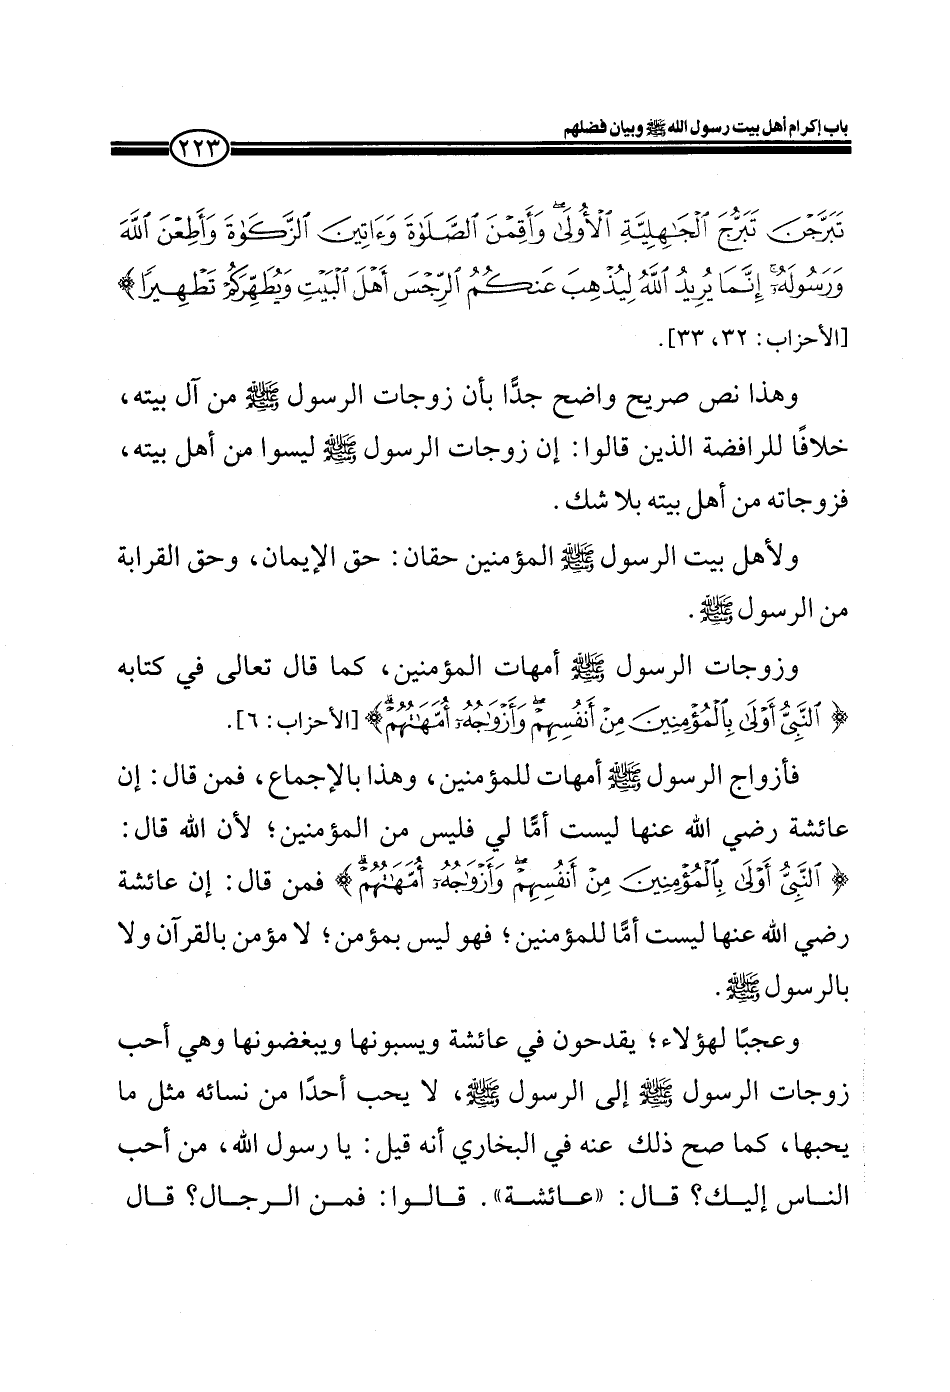 باب إكرام أهل بيت رسول الله ﷺ وبيان فضلهم
٢٢٣
تَبَرَّجْنَ تَبَرُّجَ ٱلْجَٰهِلِيَّةِ ٱلْأُولَىٰ ۖ وَأَقِمْنَ ٱلصَّلَوٰةَ وَءَاتِينَ ٱلزَّكَوٰةَ وَأَطِعْنَ ٱللَّهَ
وَرَسُولَهُۥٓ ۚ إِنَّمَا يُرِيدُ ٱللَّهُ لِيُذْهِبَ عَنكُمُ ٱلرِّجْسَ أَهْلَ ٱلْبَيْتِ وَيُطَهِّرَكُمْ تَطْهِيرًا ﴾
[الأحزاب: ٣٢، ٣٣].
وهذا نص صريح واضح جدًّا بأن زوجات الرسول ﷺ من آل بيته،
خلافًا للرافضة الذين قالوا: إن زوجات الرسول ﷺ ليسوا من أهل بيته،
فزوجاته من أهل بيته بلا شك.
ولأهل بيت الرسول ﷺ المؤمنين حقان: حق الإيمان، وحق القرابة
من الرسول ﷺ.
وزوجات الرسول ﷺ أمهات المؤمنين، كما قال تعالى في كتابه
﴿ ٱلنَّبِيُّ أَوْلَىٰ بِٱلْمُؤْمِنِينَ مِنْ أَنفُسِهِمْ ۖ وَأَزْوَٰجُهُۥٓ أُمَّهَٰتُهُمْ ۗ ﴾ [الأحزاب: ٦].
فأزواج الرسول ﷺ أمهات للمؤمنين، وهذا بالإجماع، فمن قال: إن
عائشة رضي الله عنها ليست أمًّا لي فليس من المؤمنين؛ لأن الله قال:
﴿ ٱلنَّبِيُّ أَوْلَىٰ بِٱلْمُؤْمِنِينَ مِنْ أَنفُسِهِمْ ۖ وَأَزْوَٰجُهُۥٓ أُمَّهَٰتُهُمْ ۗ ﴾ فمن قال: إن عائشة
رضي الله عنها ليست أمًّا للمؤمنين؛ فهو ليس بمؤمن؛ لا مؤمن بالقرآن ولا
بالرسول ﷺ.
وعجبًا لهؤلاء؛ يقدحون في عائشة ويسبونها ويبغضونها وهي أحب
زوجات الرسول ﷺ إلى الرسول ﷺ، لا يحب أحدًا من نسائه مثل ما
يحبها، كما صح ذلك عنه في البخاري أنه قيل: يا رسول الله، من أحب
الناس إليك؟ قال: «عائشة». قالوا: فمن الرجال؟ قال